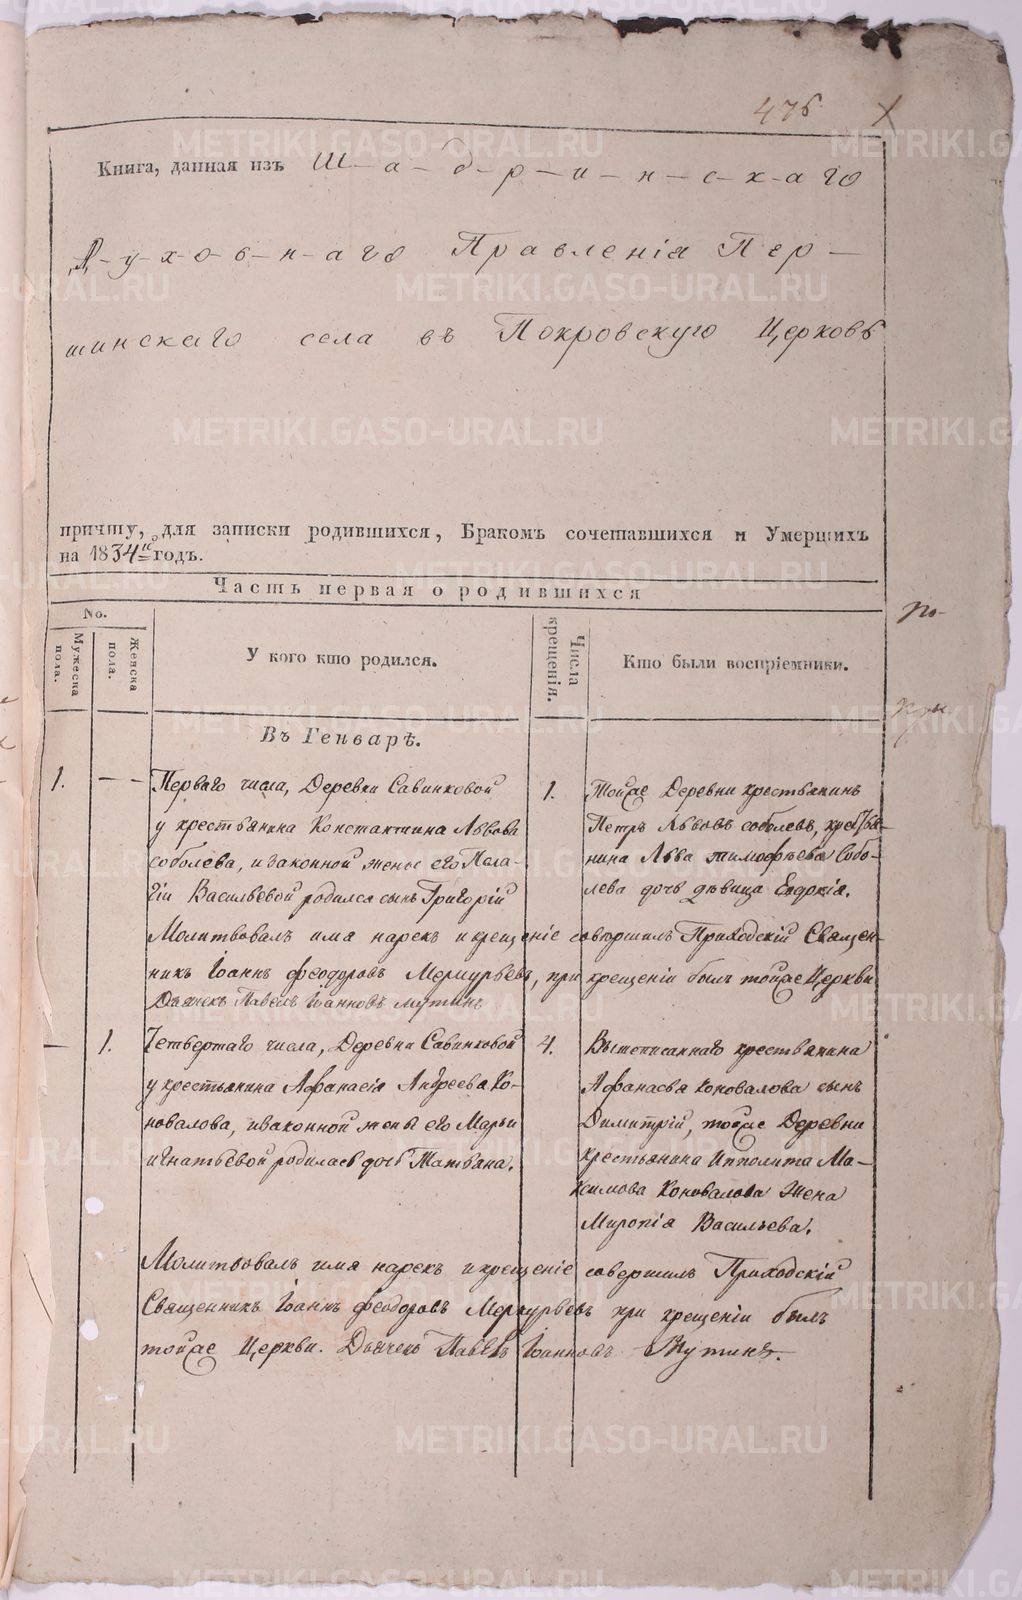 476
Книга, данная изъ Ш-а-д-р-и-н-с-к-аго
Д-у-х-о-в-н-аго Правленія Пер-
шинскаго села въ Покровскую Церковь
причту, для записки родившихся, Бракомъ сочетавшихся и Умершихъ
на 1834й годъ.
Часть первая о родившихся
No.
Мужеска пола.
Женска пола.
У кого кто родился.
Числа крещенія.
Кто были воспріемники.
Въ Генварѣ.
1. — —
Перваго числа, Деревни Савинковой
у крестьянина Константина Львова
соболева, изаконной жены его Пела-
гіи Васильевой родился сынъ Григорій
1.
Тойже Деревни крестьянинъ
Петръ Львовъ соболевъ, крестья-
нина Льва тимофѣева Собо-
лева дочь дѣвица Евдокія.
Молитвовалъ имя нарекъ икрещеніе совершилъ Приходскій Священ-
никъ Іоаннъ феодоровъ Меркурьевъ, при крещеніи былъ тойже Церкви
Дьячекъ Павелъ Іоанновъ мутинъ
— 1.
Четвертаго числа, Деревни Савинковой
у крестьянина Афанасія Андреева Ко-
новалова, изаконной жены его Марьи
игнатьевой родилась дочь Татьяна.
4.
Вышеписаннаго крестьянина
Афанасья коновалова сынъ
Димитрій, тойже Деревни
крестьянина Ипполита Ма-
ксимова Коновалова жена
Миропія Васильева.
Молитвовалъ имя нарекъ икрещеніе совершилъ Приходскій
Священникъ Іоаннъ феодоровъ Меркурьевъ при крещеніи былъ
тойже Церкви. Дьячекъ Павелъ Іоанновъ Мутинъ.
METRIKI.GASO-URAL.RU